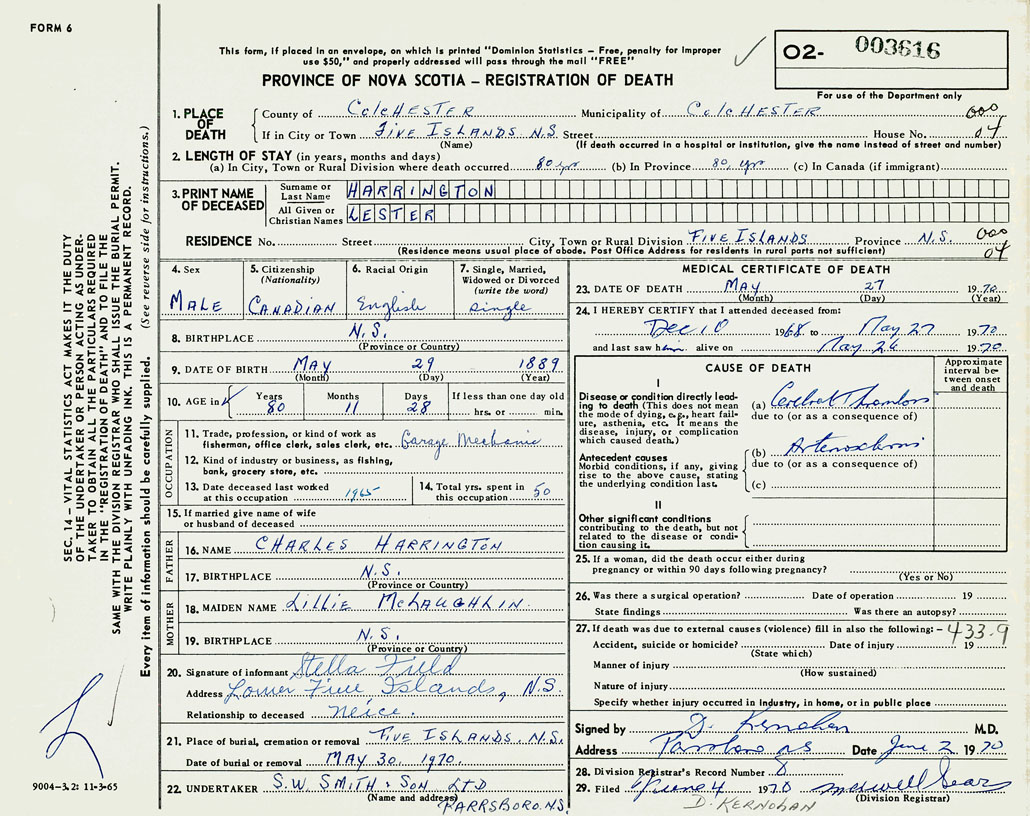 FORM 6
This form, if placed in an envelope, on which is printed "Dominion Statistics – Free, penalty for improper
use $50," and properly addressed will pass through the mail "FREE"
PROVINCE OF NOVA SCOTIA – REGISTRATION OF DEATH
O2- 003616
For use of the Department only
SEC. 14 – VITAL STATISTICS ACT MAKES IT THE DUTY
OF THE UNDERTAKER OR PERSON ACTING AS UNDER-
TAKER TO OBTAIN ALL THE PARTICULARS REQUIRED
IN THE "REGISTRATION OF DEATH" AND TO FILE THE
SAME WITH THE DIVISION REGISTRAR WHO SHALL ISSUE THE BURIAL PERMIT.
WRITE PLAINLY WITH UNFADING INK. THIS IS A PERMANENT RECORD.
Every item of information should be carefully supplied. (See reverse side for instructions.)
9004-3.2: 11-3-65
1. PLACE OF DEATH
County of ColCHESTER Municipality of ColCHESTER 000
If in City or Town FIVE ISLANDS N.S. Street House No. 04
(Name) (If death occurred in a hospital or institution, give the name instead of street and number)
2. LENGTH OF STAY (in years, months and days)
(a) In City, Town or Rural Division where death occurred 80 yr (b) In Province 80 yr (c) In Canada (if immigrant)
3. PRINT NAME OF DECEASED
Surname or Last Name HARRINGTON
All Given or Christian Names LESTER
RESIDENCE No. Street City, Town or Rural Division FIVE ISLANDS Province N.S. 000
(Residence means usual place of abode. Post Office Address for residents in rural parts not sufficient) 04
4. Sex
MALE
5. Citizenship
(Nationality)
CANADIAN
6. Racial Origin
English
7. Single, Married,
Widowed or Divorced
(write the word)
single
8. BIRTHPLACE N.S.
(Province or Country)
9. DATE OF BIRTH MAY 29 1889
(Month) (Day) (Year)
10. AGE in Years Months Days If less than one day old
80 11 28 hrs. or min.
OCCUPATION
11. Trade, profession, or kind of work as
fisherman, office clerk, sales clerk, etc. Garage Mechanic
12. Kind of industry or business, as fishing,
bank, grocery store, etc.
13. Date deceased last worked
at this occupation 1965
14. Total yrs. spent in
this occupation 50
15. If married give name of wife
or husband of deceased
FATHER
16. NAME CHARLES HARRINGTON
17. BIRTHPLACE N.S.
(Province or Country)
MOTHER
18. MAIDEN NAME LILLIE McLAUGHLIN.
19. BIRTHPLACE N.S.
(Province or Country)
20. Signature of informant Stella Fuld
Address Lower Five Islands, N.S.
Relationship to deceased Neice.
21. Place of burial, cremation or removal FIVE ISLANDS. N.S.
Date of burial or removal MAY 30, 1970.
22. UNDERTAKER S.W. SMITH & SON LTD
(Name and address) PARRSBORO. N.S.
MEDICAL CERTIFICATE OF DEATH
23. DATE OF DEATH MAY 27 1970
(Month) (Day) (Year)
24. I HEREBY CERTIFY that I attended deceased from:
Dec 10 1968 to May 27 1970
and last saw him alive on May 26 1970
CAUSE OF DEATH
Approximate
interval be-
tween onset
and death
I
Disease or condition directly lead-
ing to death (This does not mean
the mode of dying, e.g., heart fail-
ure, asthenia, etc. It means the
disease, injury, or complication
which caused death.)
(a) Cerebral Thrombosis
due to (or as a consequence of)
Antecedent causes
Morbid conditions, if any, giving
rise to the above cause, stating
the underlying condition last.
(b)
due to (or as a consequence of)
(c)
II
Other significant conditions
contributing to the death, but not
related to the disease or condi-
tion causing it.
25. If a woman, did the death occur either during
pregnancy or within 90 days following pregnancy?
(Yes or No)
26. Was there a surgical operation? Date of operation 19
State findings Was there an autopsy?
27. If death was due to external causes (violence) fill in also the following: – 433.9
Accident, suicide or homicide? Date of injury 19
(State which)
Manner of injury
(How sustained)
Nature of injury
Specify whether injury occurred in industry, in home, or in public place
Signed by D. Kernohan M.D.
Address Parrsboro NS Date June 2 1970
28. Division Registrar's Record Number 8
29. Filed June 4 1970 Maxwell Sears
(Division Registrar)
D. KERNOHAN